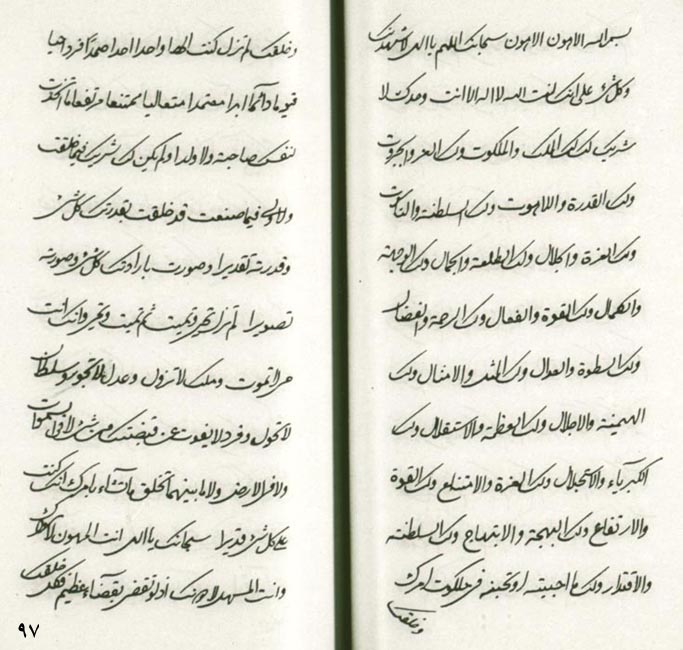 بسم الله الاهون الاهون سبحانك اللهم يا الهي لاشهدنك
وكل شيء على انك انت الله لا اله الا انت وحدك لا
شريك لك لك الملك والملكوت ولك العز والجبروت
ولك القدرة واللاهوت ولك السلطنة والناسوت
ولك العزة والجلال ولك الطلعة والجمال ولك الوجهة
والكمال ولك القوة والفعال ولك الرحمة والفضال
ولك السطوة والعدال ولك المثل والامثال ولك
الهيمنة والاجلال ولك العظمة والاستقلال ولك
الكبرياء والاستجلال ولك العزة والامتناع ولك القوة
والارتفاع ولك البهجة والابتهاج ولك السلطنة
والاقتدار ولك ما احببته او تحبنه في ملكوت امرك
وخلقك
وخلقك لم تزل كنت الها واحدا احدا صمدا فردا حيا
قيوما دائما ابدا معتمدا متعاليا ممتنعا مرتفعا ما اتخذت
لنفسك صاحبة ولا ولدا ولم يكن لك شريك فيما خلقت
ولا ولي فيما صنعت قد خلقت بقدرتك كل شيء
وقدرته تقديرا وصورت بارادتك كل شيء وصورته
تصويرا لم تزل تحيي وتميت ثم تميت وتحيي وانك انت
حي لا تموت وملك لا تزول وعدل لا تجور وسلطان
لا تحول وفرد لا يفوت عن قبضتك من شيء لا في السموات
ولا في الارض ولا ما بينهما تخلق ما تشاء بامرك انك كنت
على كل شيء قديرا سبحانك يا الهي انت المهون
وانت المسهد لاحزنك اذ لو تقضي بقضاء عظيم
۹۷